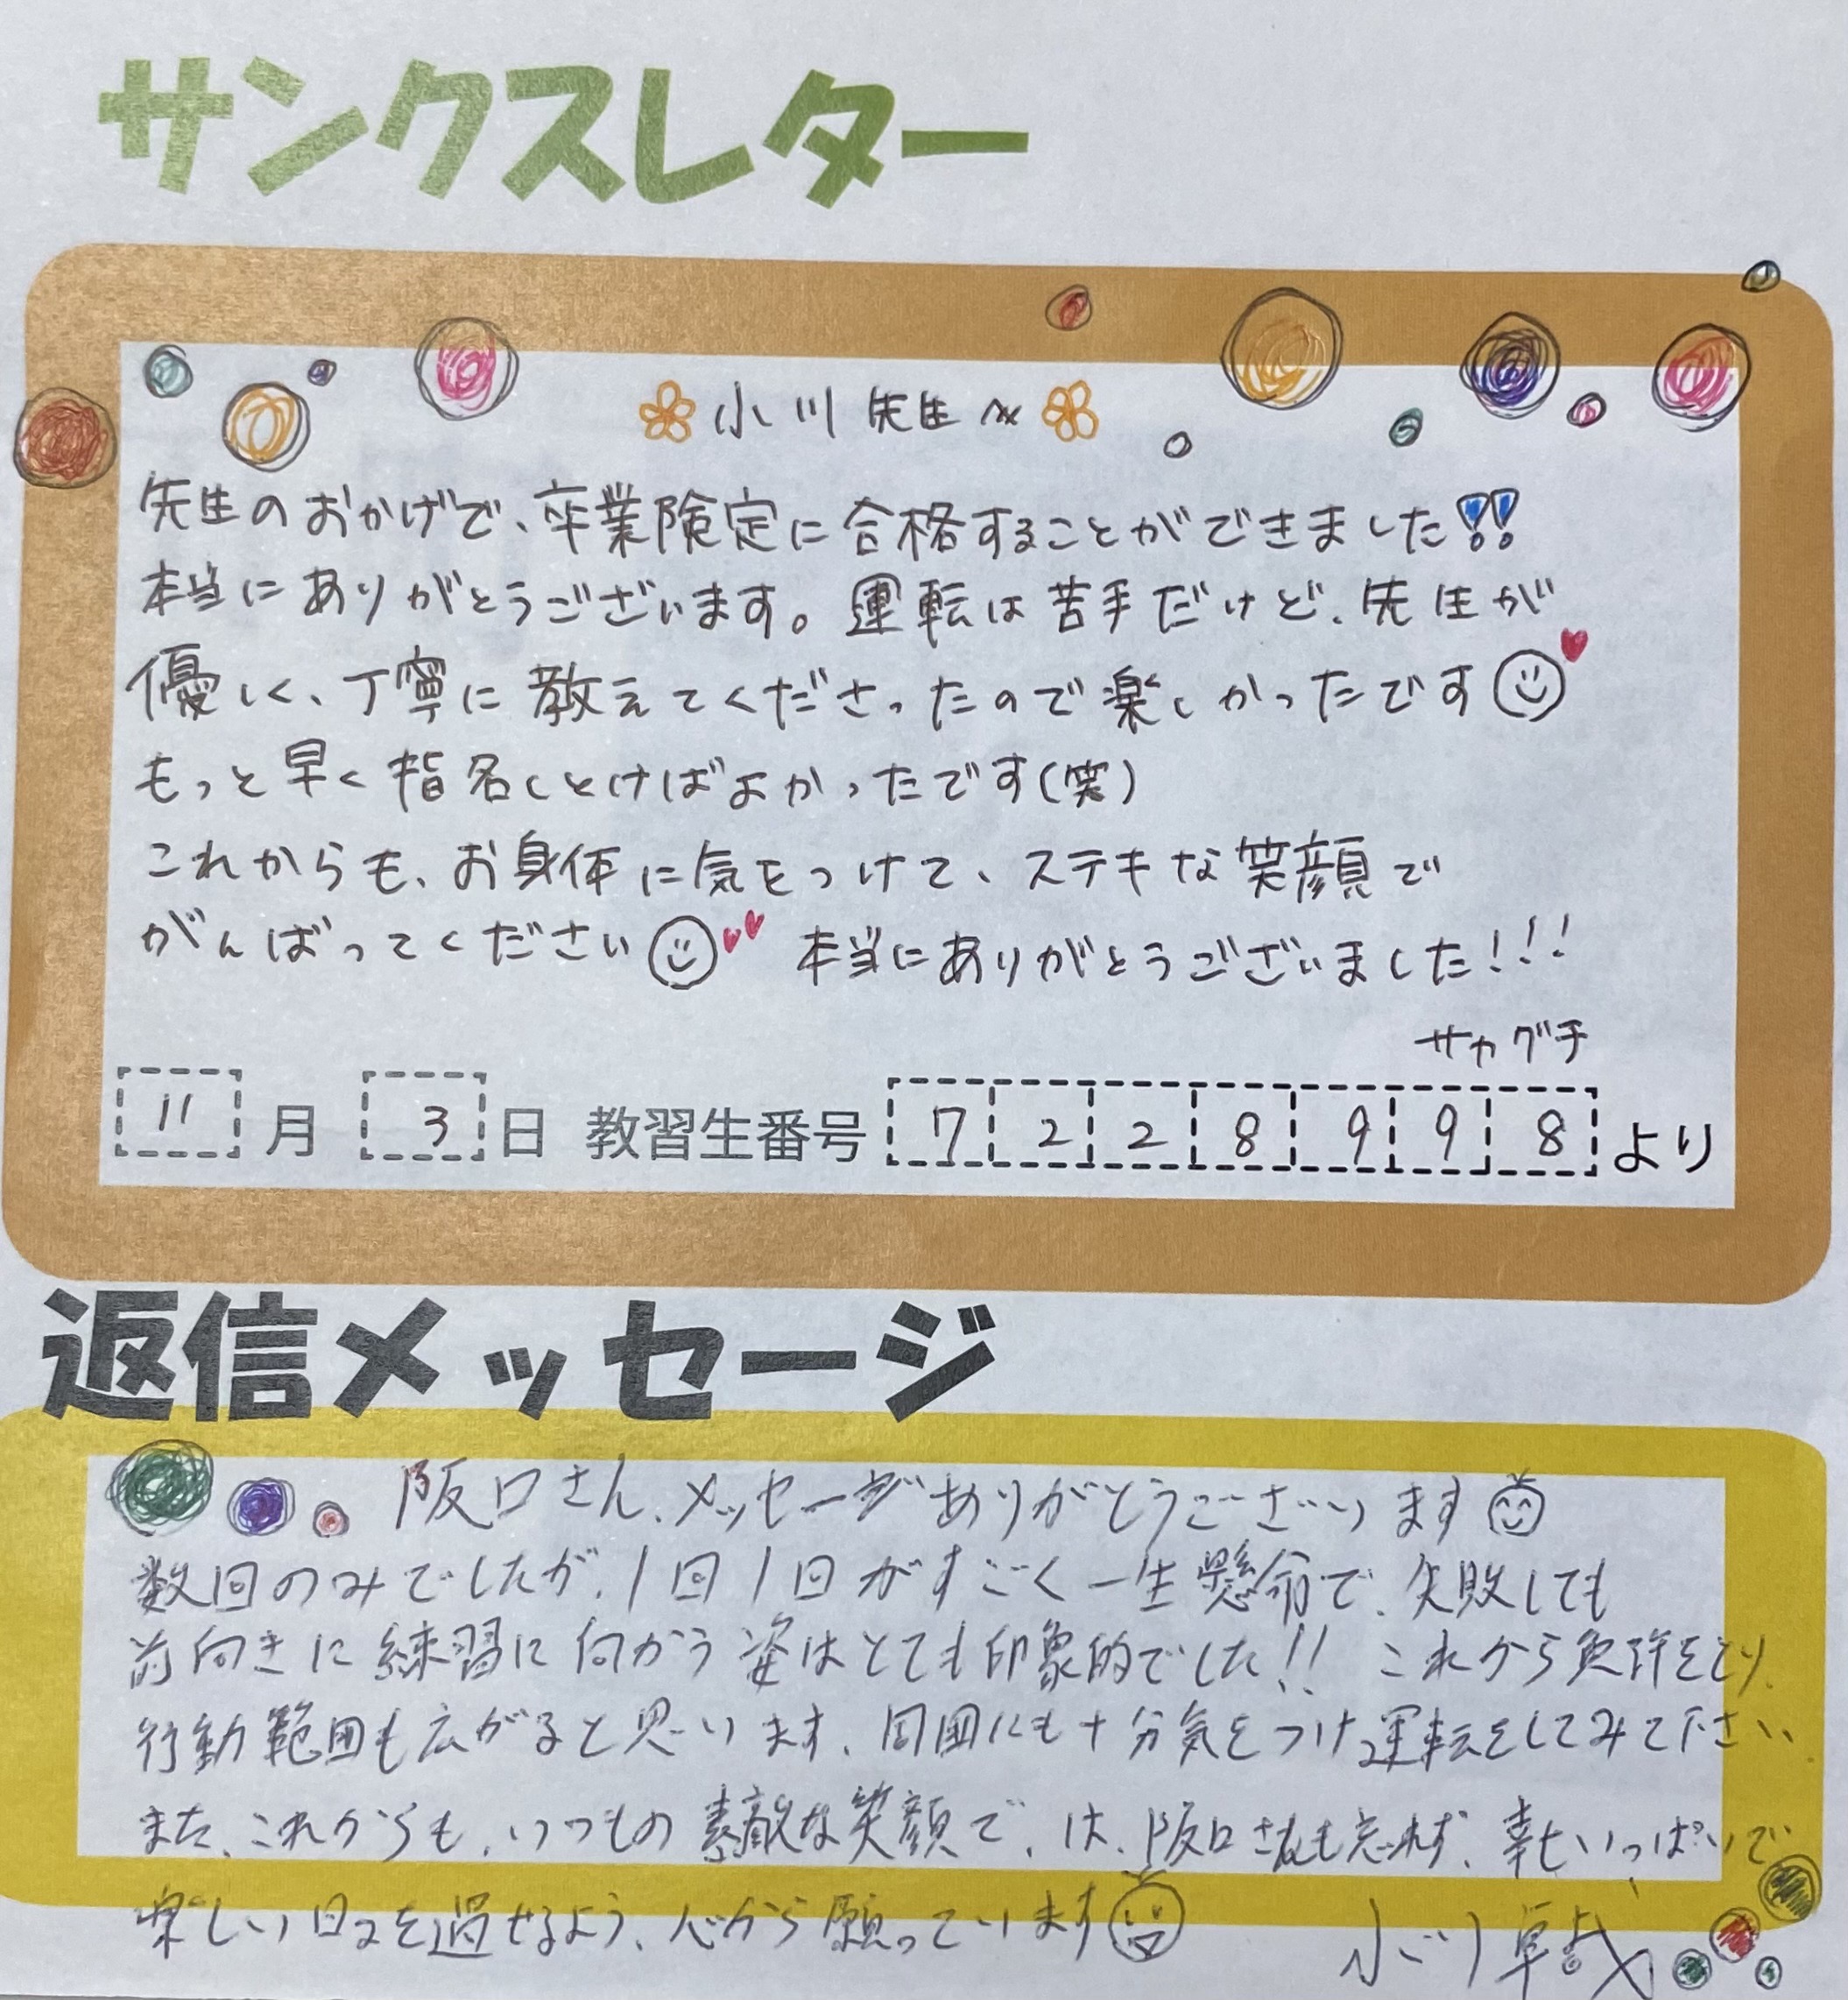 サンクスレター
小川先生へ
先生のおかげで、卒業険定に合格することができました!!
本当にありがとうございます。運転は苦手だけど、先生が
優しく、丁寧に教えてくださったので楽しかったです
もっと早く指名しとけばよかったです(笑)
これからも、お身体に気をつけて、ステキな笑顔で
がんばってください 本当にありがとうございました!!!
サカグチ
11月 3日 教習生番号 7228998 より
返信メッセージ
阪口さん、メッセージありがとうございます
数回のみでしたが、1回1回がすごく一生懸命で、失敗しても
前向きに練習に向かう姿はとても印象的でした!! これから免許をとり、
行動範囲も広がると思います、周囲にも十分気をつけ運転をしてみて下さい、
また、これからも、いつもの素敵な笑顔で、は、阪口さんも忘れず、幸せいっぱいで
楽しい日々を過せるよう、心から願っています
小川卓哉